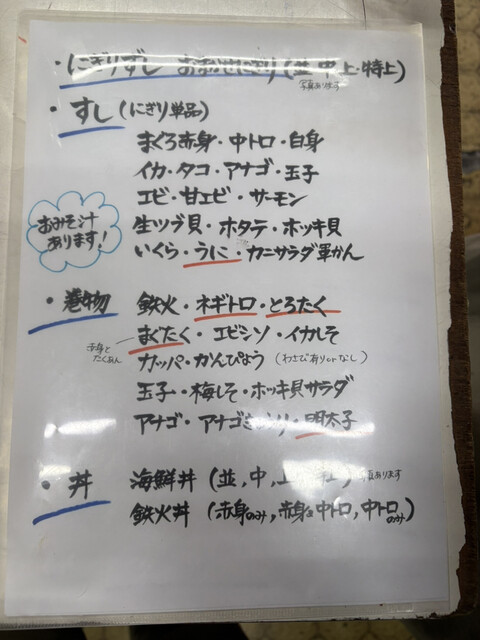 ・にぎりずし おまかせにぎり(並・中・上・特上)
写真あります
・すし(にぎり単品)
まぐろ赤身・中トロ・白身
イカ・タコ・アナゴ・玉子
エビ・甘エビ・サーモン
生ツブ貝・ホタテ・ホッキ貝
いくら・うに・カニサラダ軍かん
おみそ汁
あります!
・巻物 鉄火・ネギトロ・とろたく
まぐたく・エビシソ・イカしそ
赤身と
たくあん
カッパ・かんぴょう(わさび有りorなし)
玉子・梅しそ・ホッキ貝サラダ
アナゴ・アナゴきゅうり・明太子
・丼 海鮮丼(並,中,上,特上)写真あります
鉄火丼(赤身のみ,赤身と中トロ,中トロのみ)